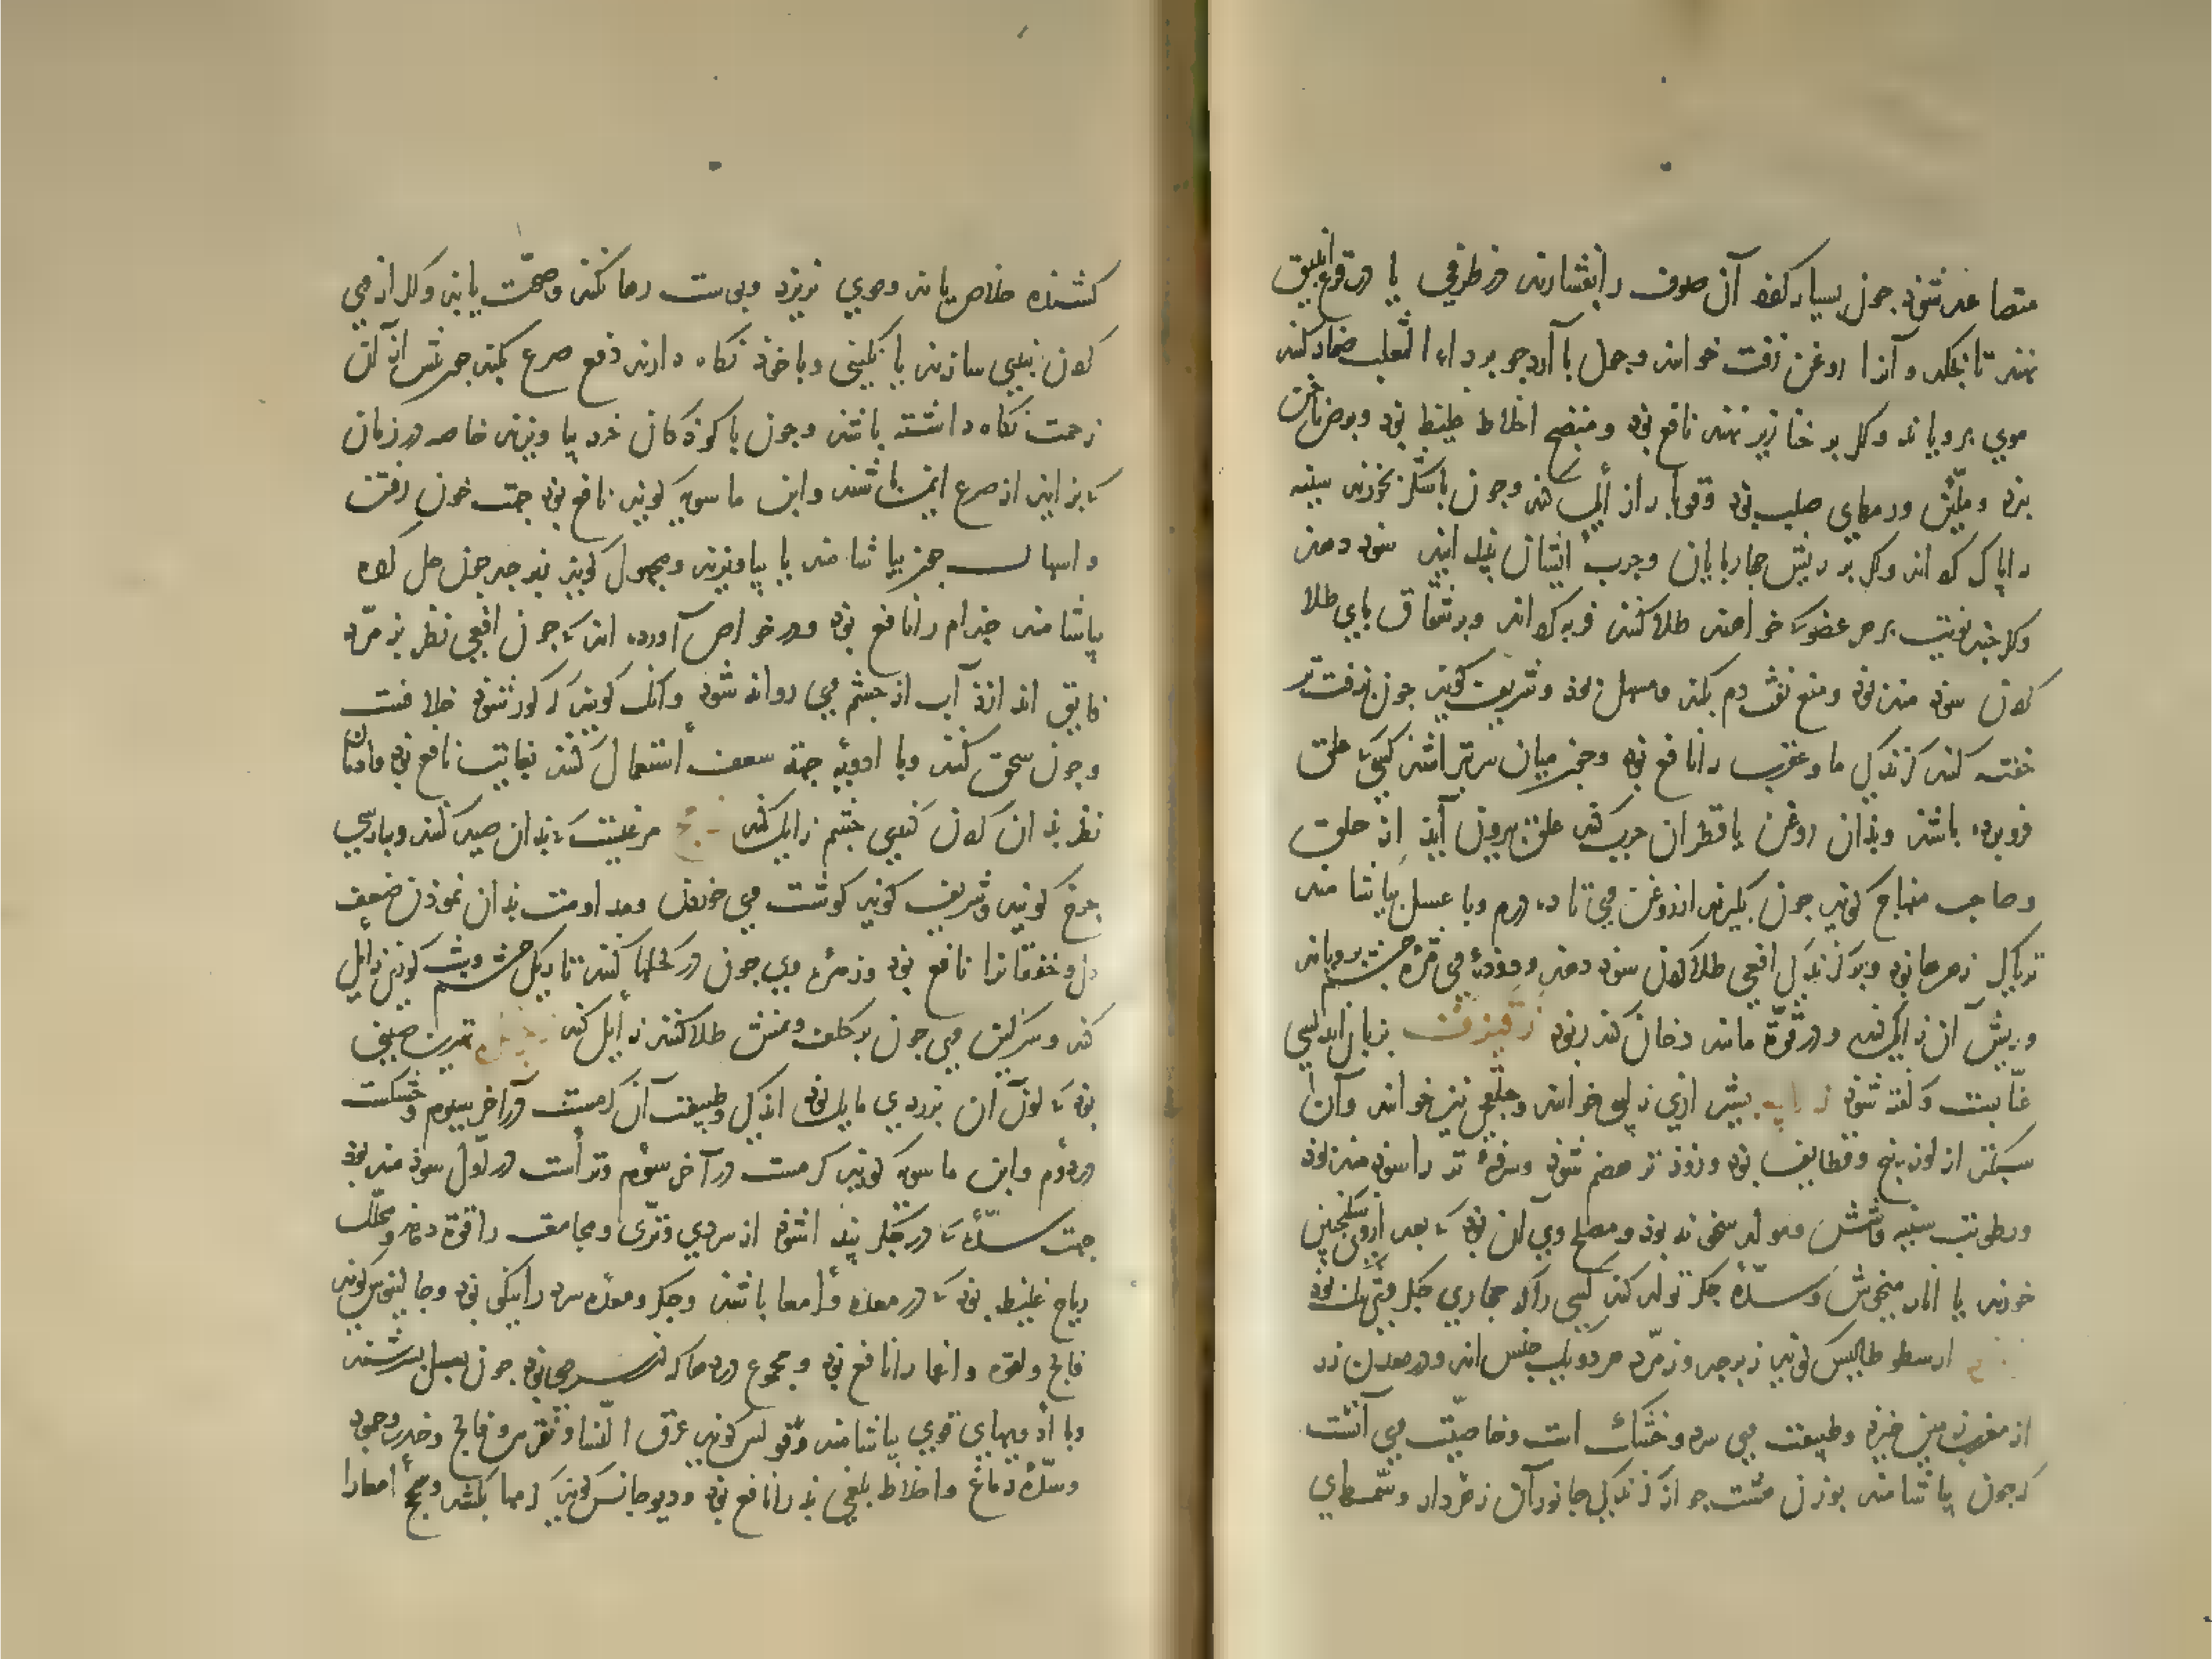 متصاعد شود جون بسیار کرد آن صوف را بفشارند در ظرفی یا در قرع انبیق
نهند تا بجکد و آنرا روغن زفت خوانند وجون با آرد جو بر داء الثعلب ضماد کنند
موی برویاند وکر بر خنازیر نهند نافع بود ومنضج اخلاط غلیظ بود وبرص ناخن
ببرد وملین ورمهای صلب بود وقوبا را زایل کند وجون با شکر بخورند سینه
را پاک کرداند وکر بر ریش جهاربایان وجرب ایشان سود دهد
وکر جند نوبت بر هر عضوی که خواهند طلا کنند فربه کرداند وبر شقاق پای طلا
کردن سود مند بود ومنع نفث دم بکند ومسهل بود وشریف کوید جون بزفت تر
کنند کزندکی مار وعقرب را نافع بود وجون میان سر بتراشند کسی که علق
فرو برده باشد وبدان روغن یا قطران جرب کند علق بیرون آید از حلق
وصاحب منهاج کوید جون بکیرند از روغن وی تا ده درم وبا عسل بیاشامند
تریاک زهرها بود وبر کزندکی افعی طلا کردن سود دهد ودوده وی مژه جشم برویاند
وریش آن زایل کند ودر قوة مانند دخان کندر بود زفیزف بزبان اندلسی
عنابست وکفته شود زلابیه بشیرازی زلیبی خوانند نیز خوانند وآن
سبکتر از لوزینج وقطایف بود وزود تر هضم شود وسرفه تر را سود مند بود
ورطوبت سینه وشش ومولد سخونه بود ومصلح وی آن بود که بعد از وی سکنجبین
خورند یا انار میخوش وسده جکر تولد کند کسی را که مجاری جکر وی تنک بود
ارسطوطالیس کوید زبرجد وزمرد هر دو یک جنس اند ودر معدن زر
از مغرب زمین خیزد وطبیعت وی سرد وخشک است وخاصیت وی آنست
که جون بیاشامند بوزن هشت جو از کزندکی جانوران زهردار وسمهای
کشنده خلاص یابند وموی نریزد وپوست رها نکند وصحت یابند وکر از وی
کردن بندی سازند یا نکینی وبا خود نکاه دارند دفع صرع بکند جهرش از آن
زحمت نکاه داشته باشند وجون با کوذکان خرد بیاویزند خاصه در زمان
که بزایند از صرع ایمن باشند وابن ماسویه کوید نافع بود جهت خون رفتن
واسهال جون بیاشامند یا بیاویزند ومجهول کوید زبرجد جون حل کرده
بیاشامند جذام را نافع بود ودر خواص آورده اند که جون افعی نظر بزمرد
فایق اندازد آب از جشم وی روانه شود وآنک کویند که کور شود خلافست
وجون سحق کنند وبا ادویه جهة سعفه استعمال کنند بغایت نافع بود وادمان
نظر بدان کردن کندی جشم زایل کند زمج مرغیست که بدان صید کنند وبپارسی
جرغ کویند وشریف کوید کوشت وی خوردن ومداومت بدان نمودن ضعف
دل وخفقانرا نافع بود وزهره وی جون در کحلها کنند تاریکی جشم وشب کوری زایل
کند وسرکین وی جون بر کلف ونمش طلا کنند زایل کند زنجبیل بهترین صینی
بود که لون آن بزردی مایل بود اندکی وطبیعت آن کرمست در آخر سیوم وخشکست
در دوم وابن ماسویه کوید کرمست در آخر سوم وترست در اول سود مند بود
جهت سده که در جکر پیدا شود از سردی وتری ومجامعت را قوة دهد ومحلل
ریاح غلیظ بود که در معده وامعا باشد وجکر ومعده سرد را نیکو بود وجالینوس کوید
فالج ولقوه را نافع بود ومجموع دردها که از سردی بود جون بعسل بسرشند
وبا ادویهای قوی بیاشامند وقولس کوید عرق النسا ونقرس وفالج وخدر
وسده دماغ واخلاط بلغمی بد را نافع بود ودیوجانس کوید کرمها بکشد امعا را